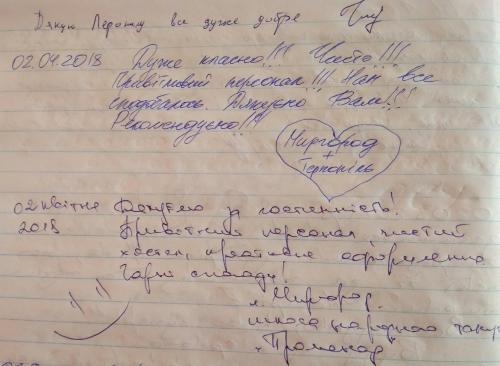 Дякую Перошу все дуже добре
02.04.2018 Дуже класно!!! Чисто!!!
Привітливий персонал!!! Нам все
сподобалось. Дякуємо Вам!!!
Рекомендуємо!!!
Миргород
+
Тернопіль
02 квітне Дякуємо за гостинність!
2018 Привітний персонал, чистий
хостел, креативне оформлення
Гарні спогади!
м. Миргород
школа народного танцю
"Променад"